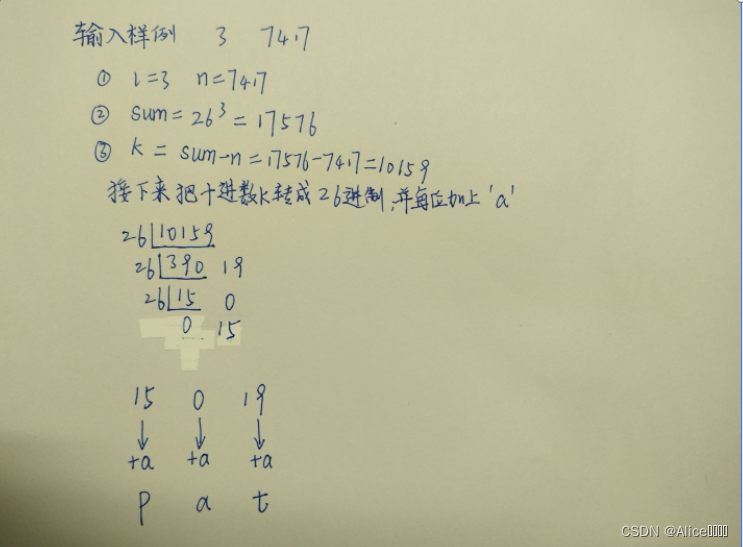 输入样例 3 7417
① l=3 n=7417
② sum=26³=17576
③ k=sum-n=17576-7417=10159
接下来把十进数k转成26进制,并每位加上'a'
26 10159
26 390 19
26 15 0
0 15
15 0 19
↓ ↓ ↓
+a +a +a
p a t
CSDN @Alice